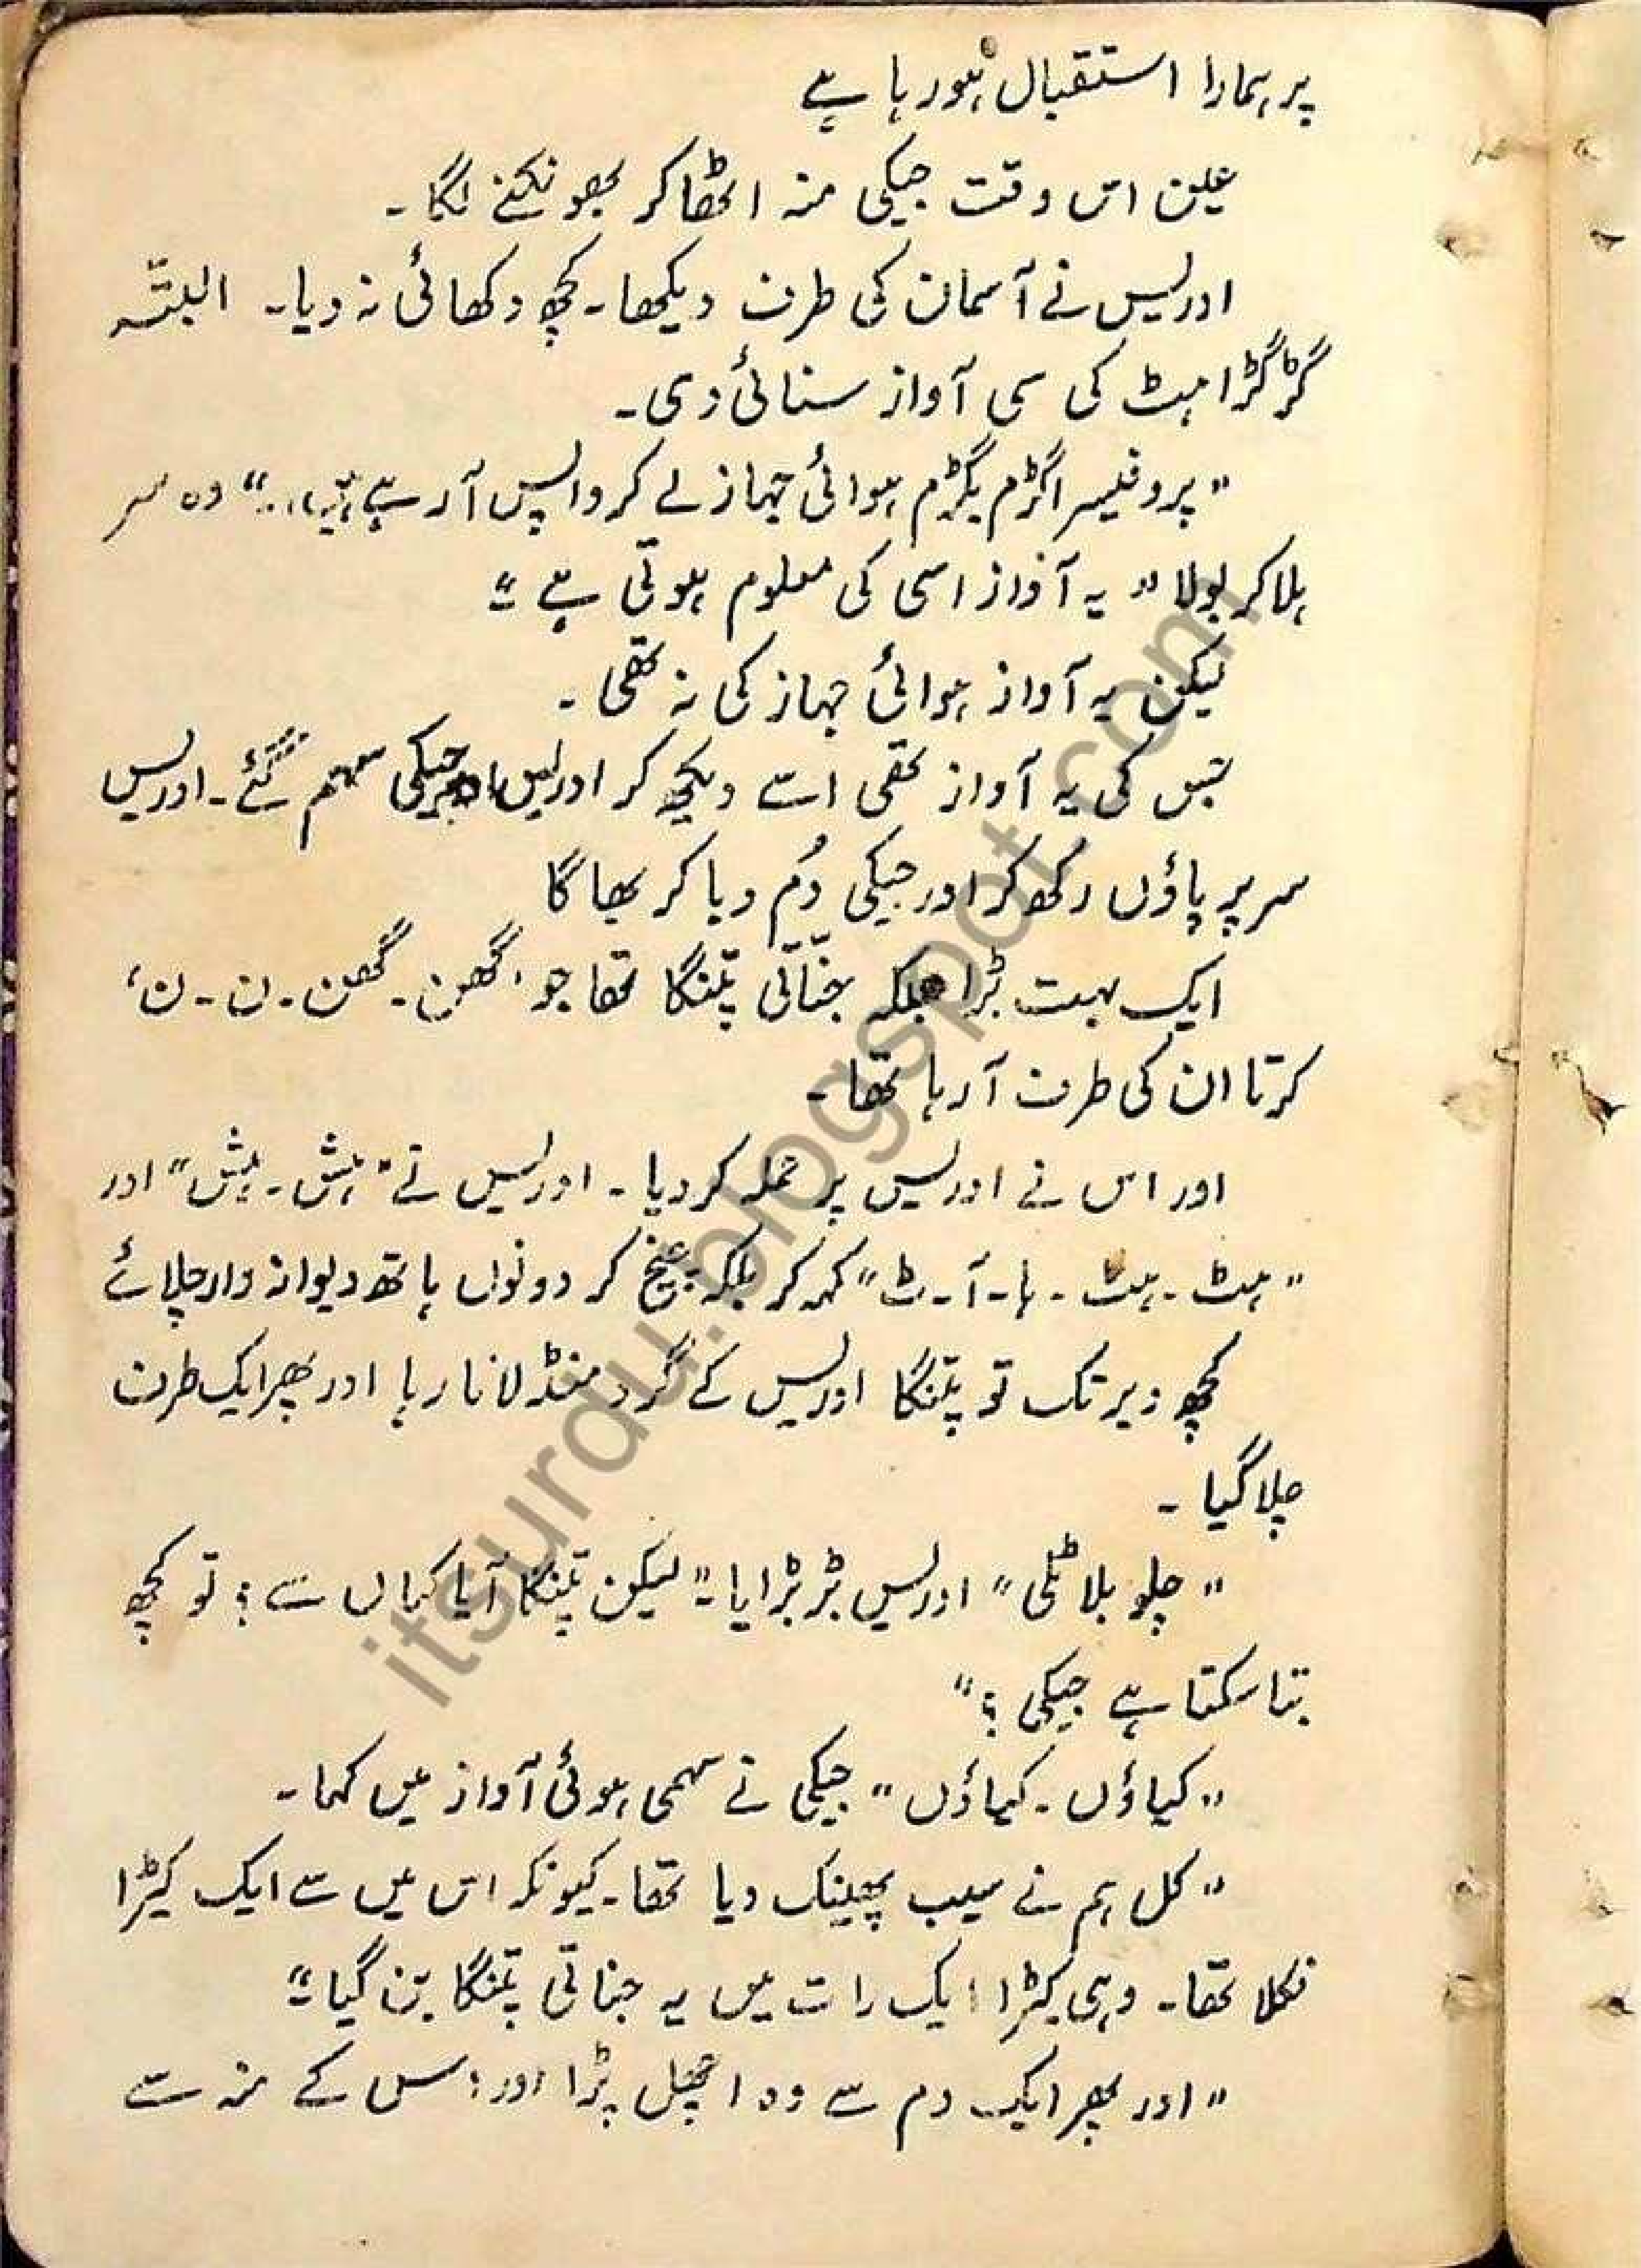 پر ہمارا استقبال ہو رہا ہے
عین اس وقت جیکی منہ اٹھا کر بھونکنے لگا۔
ادریس نے آسمان کی طرف دیکھا۔ کچھ دکھائی نہ دیا۔ البتّہ
گڑگڑاہٹ کی سی آواز سنائی دی۔
"پروفیسر اگڑم بگڑم ہوائی جہاز لے کر واپس آ رہے ہیں..." وہ سر
ہلا کر بولا "یہ آواز اسی کی معلوم ہوتی ہے۔"
لیکن یہ آواز ہوائی جہاز کی نہ تھی۔
جس کی یہ آواز تھی اسے دیکھ کر ادریس اور جیکی سہم گئے۔ ادریس
سر پر پاؤں رکھ کر اور جیکی دُم دبا کر بھاگا
ایک بہت بڑا بلکہ جنّاتی پتنگا تھا جو 'گھن۔ گھن۔ ن۔ ن'
کرتا ان کی طرف آ رہا تھا۔
اور اس نے ادریس پر حملہ کر دیا۔ ادریس نے "ہش۔ ہش" اور
"ہٹ۔ ہٹ۔ ہا۔ آ۔ ٹ" کہہ کر بلکہ چیخ کر دونوں ہاتھ دیوانہ وار چلائے
کچھ دیر تک تو پتنگا ادریس کے گرد منڈلاتا رہا اور پھر ایک طرف
چلا گیا۔
"چلو بلا ٹلی" ادریس بڑبڑایا۔ "لیکن پتنگا آیا کہاں سے؟ تو کچھ
بتا سکتا ہے جیکی؟"
"کیاؤں۔ کیاؤں" جیکی نے سہمی ہوئی آواز میں کہا۔
"کل ہم نے سیب پھینک دیا تھا۔ کیونکہ اس میں سے ایک کیڑا
نکلا تھا۔ وہی کیڑا ایک رات میں یہ جناتی پتنگا بن گیا۔"
"اور پھر ایک دم سے وہ اچھل پڑا اور اس کے منہ سے
itsurdu.blogspot.com